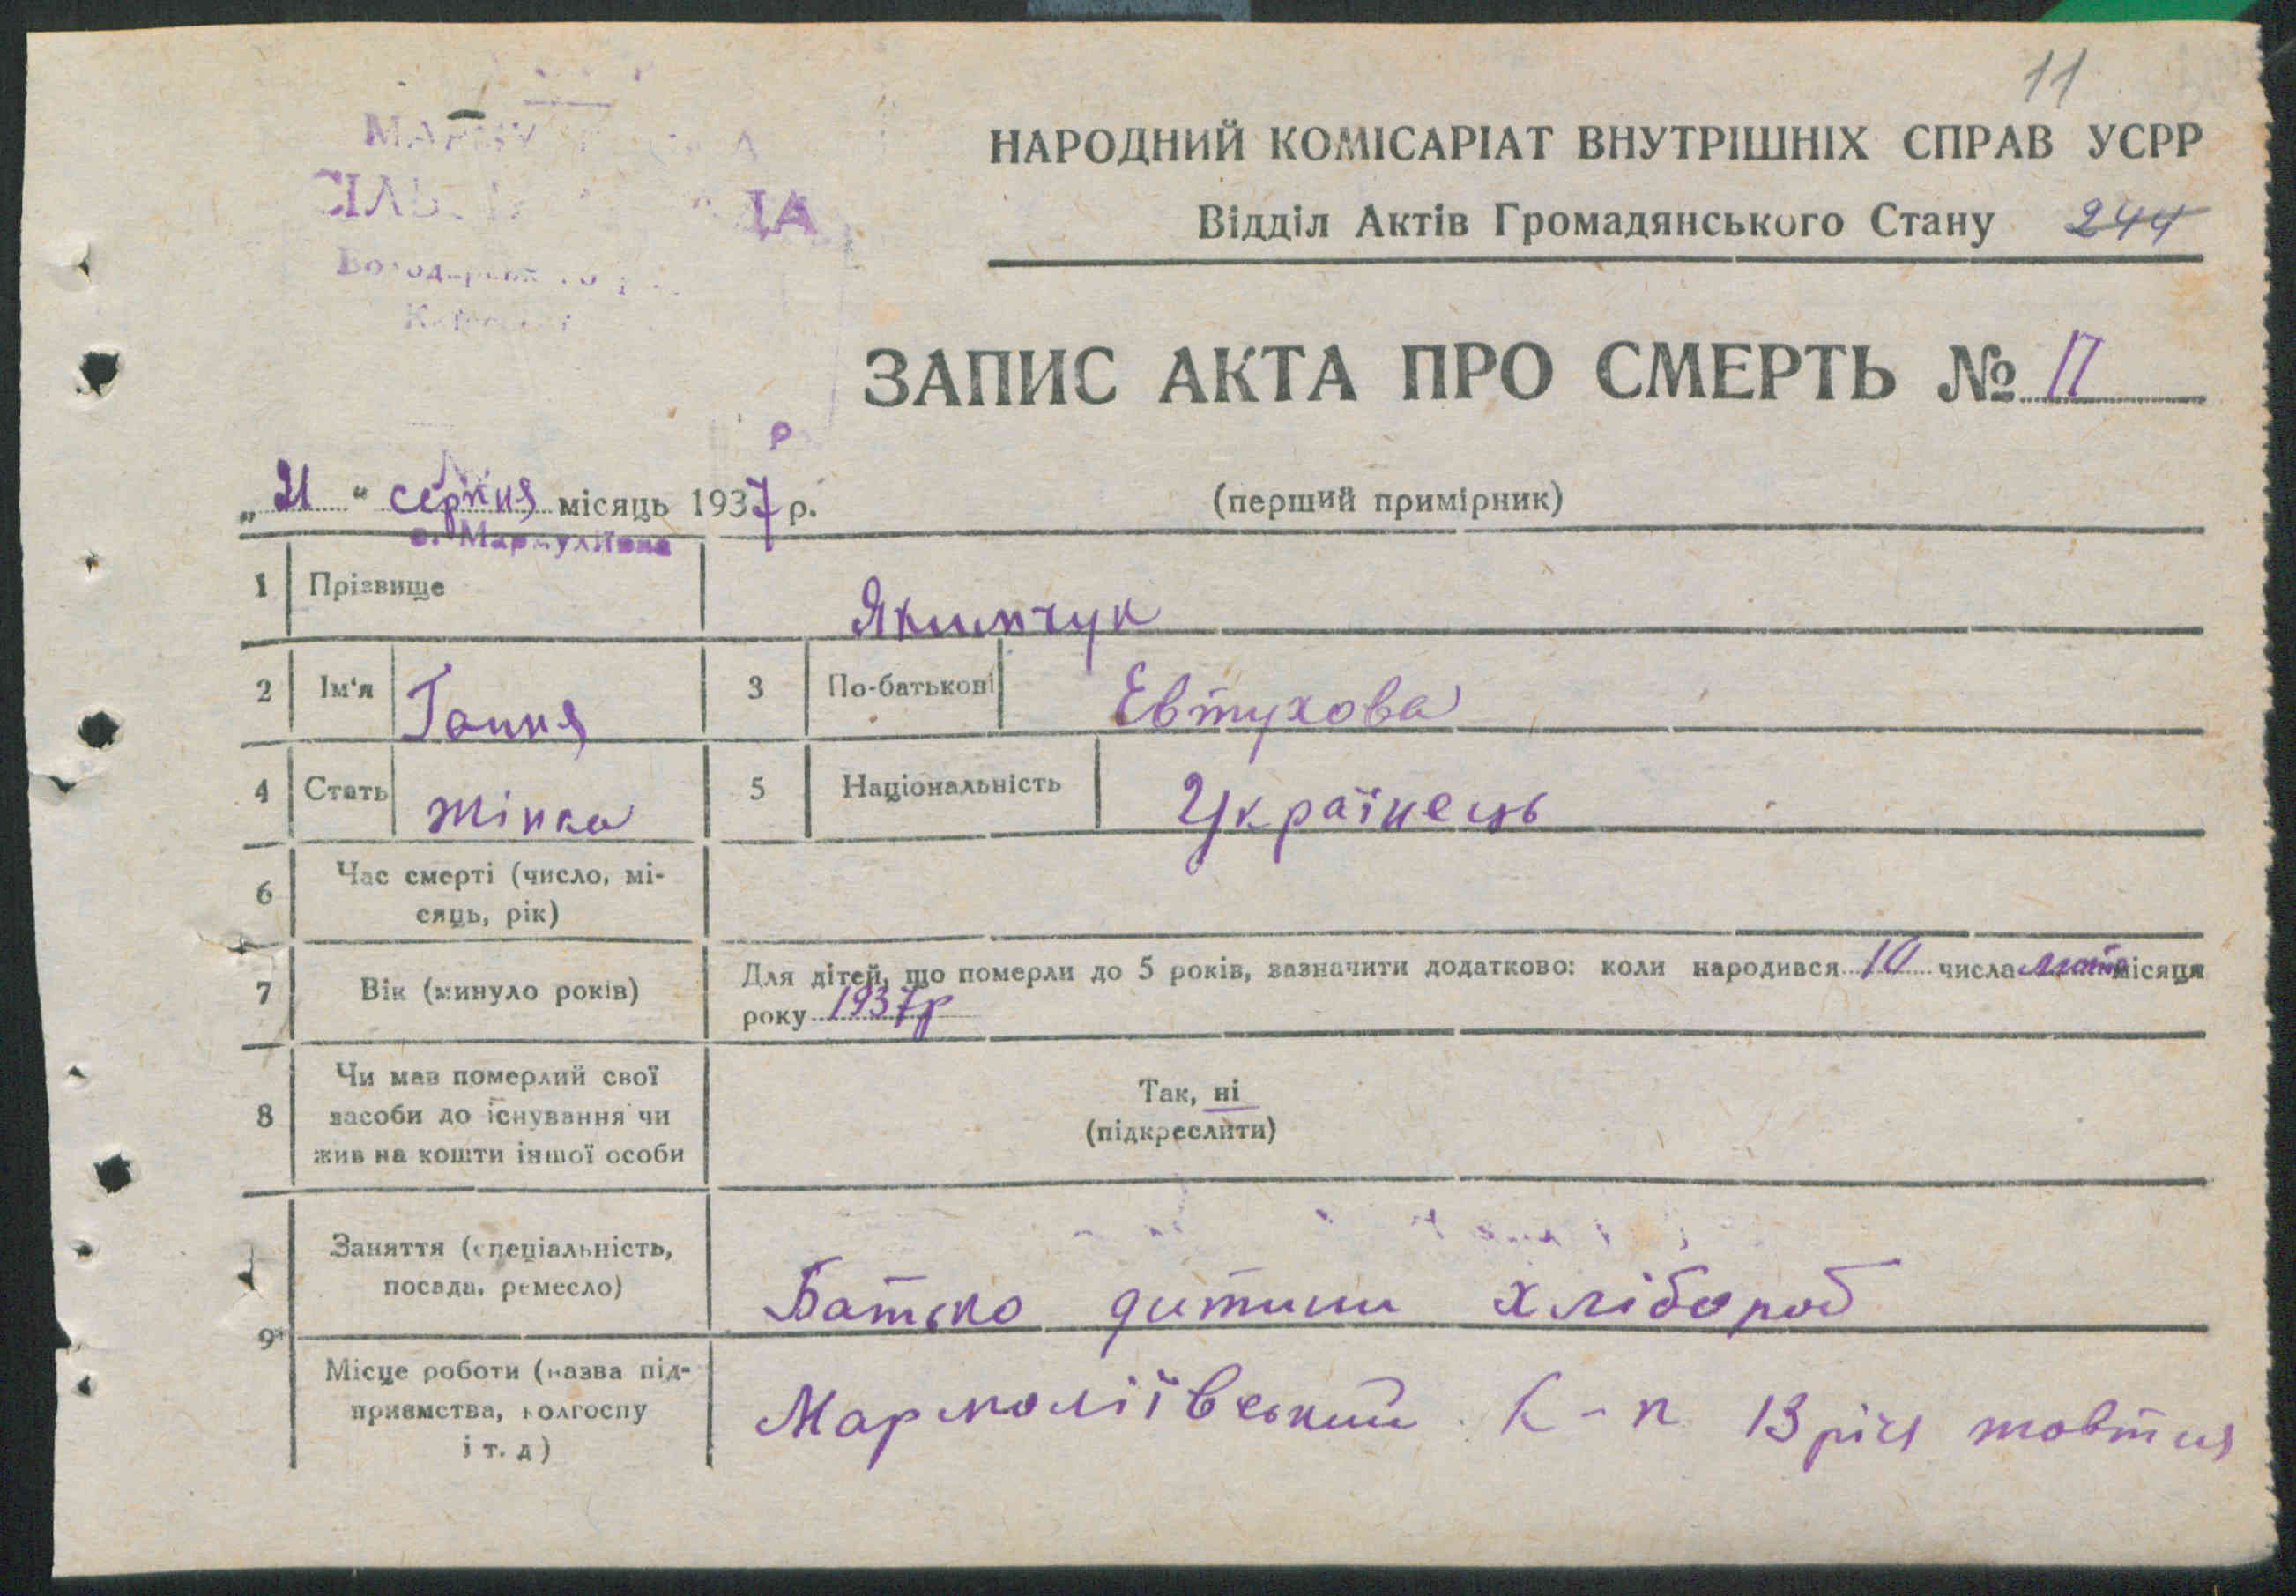 11
НАРОДНИЙ КОМІСАРІАТ ВНУТРІШНІХ СПРАВ УСРР
Відділ Актів Громадянського Стану 244
ЗАПИС АКТА ПРО СМЕРТЬ № 11
„21“ серпня місяць 1937 р.
(перший примірник)
1 Прізвище Якимчук
2 Ім'я Гання 3 По-батькові Евтухова
4 Стать жінка 5 Національність Українець
6 Час смерті (число, мі-
сяць, рік)
7 Вік (минуло років) Для дітей, що померли до 5 років, зазначити додатково: коли народився 10 числа місяця
року 1937р
8 Чи мав померлий свої
засоби до існування чи
жив на кошти іншої особи
Так, ні
(підкреслити)
9 Заняття (спеціальність,
посада, ремесло) Батько дитини хлібороб
Місце роботи (назва під-
приємства, колгоспу
і т. д)
К-п 13 річя жовтня